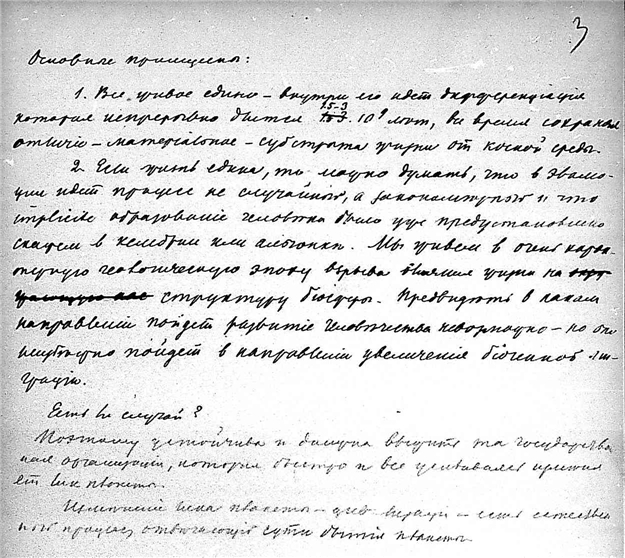 3
Основные принципы:
1. Все живое едино – внутри его идет дифференціація
которая непрерывно длится 1.5-3 · 10⁹ лет, во время сохраняя
отличіе – матеріальное – субстрата жизни от косной среды.
2. Если жизнь едина, то можно думать, что в эволю-
ции идет процесс не случайный, а закономерный и что
implicite образованіе человека было уже предустановлено
скажем в кембріи или альгонки. Мы живем в очень
геологическую эпоху взрыва вліянія жизни на
структуру біосферы. Предвидеть в каком
направленіи пойдет развитіе человечества невозможно – но оно
неизбежно пойдет в направленіи увеличенія біогенной миг-
раціи.
Есть ли случай?
Поэтому устойчива и должна та государствен-
ная организація, которая быстро и все
ет лик планеты.
Измененіе лика планеты – – есть естествен-
ный процесс, отвечающій сути бытія планеты.